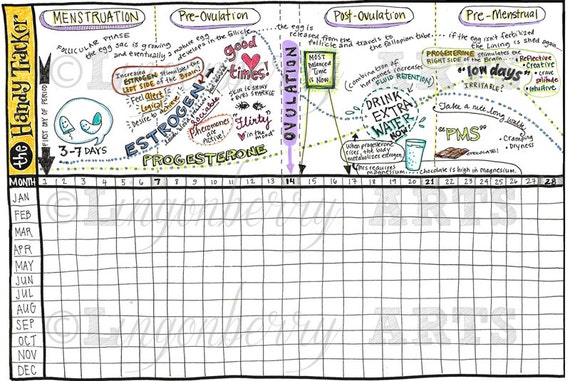 the Handy Tracker
MENSTRUATION
Pre-Ovulation
Post-Ovulation
Pre-Menstrual
FOLLICULAR PHASE
the egg sac is growing
and eventually a mature egg
develops in the follicle...
...the egg is
released from the
follicle and travels to the fallopian tube.
...if the egg isn't fertilized
the lining is shed again...
FIRST DAY OF PERIOD
3-7 DAYS
Increased
ESTROGEN stimulates the
LEFT SIDE of the Brain
Feel Alert
Logical
Desire to achieve
ESTROGEN
PROGESTERONE
good
times!
skin is shiny
eyes sparkle
Pheromones are
active!
Flirty
in the
mood
OVULATION
MOST
balanced
Time
is Now
(combination of
hormones increases
FLUID RETENTION)
DRINK
EXTRA
WATER
NOW!
When progesterone
rises, the body
metabolizes estrogen.
This requires
magnesium.....chocolate is high in magnesium.
PROGESTERONE stimulates the
RIGHT SIDE of the Brain
Reflective
• Creative
• crave
• intuitive
"low days"
IRRITABLE!
Take a nice long walk
"PMS"
• Cramping
• Dryness
CHOCOLATE!
MONTH 1 2 3 4 5 6 7 8 9 10 11 12 13 14 15 16 17 18 19 20 21 22 23 24 25 26 27 28
JAN
FEB
MAR
APR
MAY
JUN
JUL
AUG
SEP
OCT
NOV
DEC
©Lingonberry ARTS
©Lingonberry ARTS